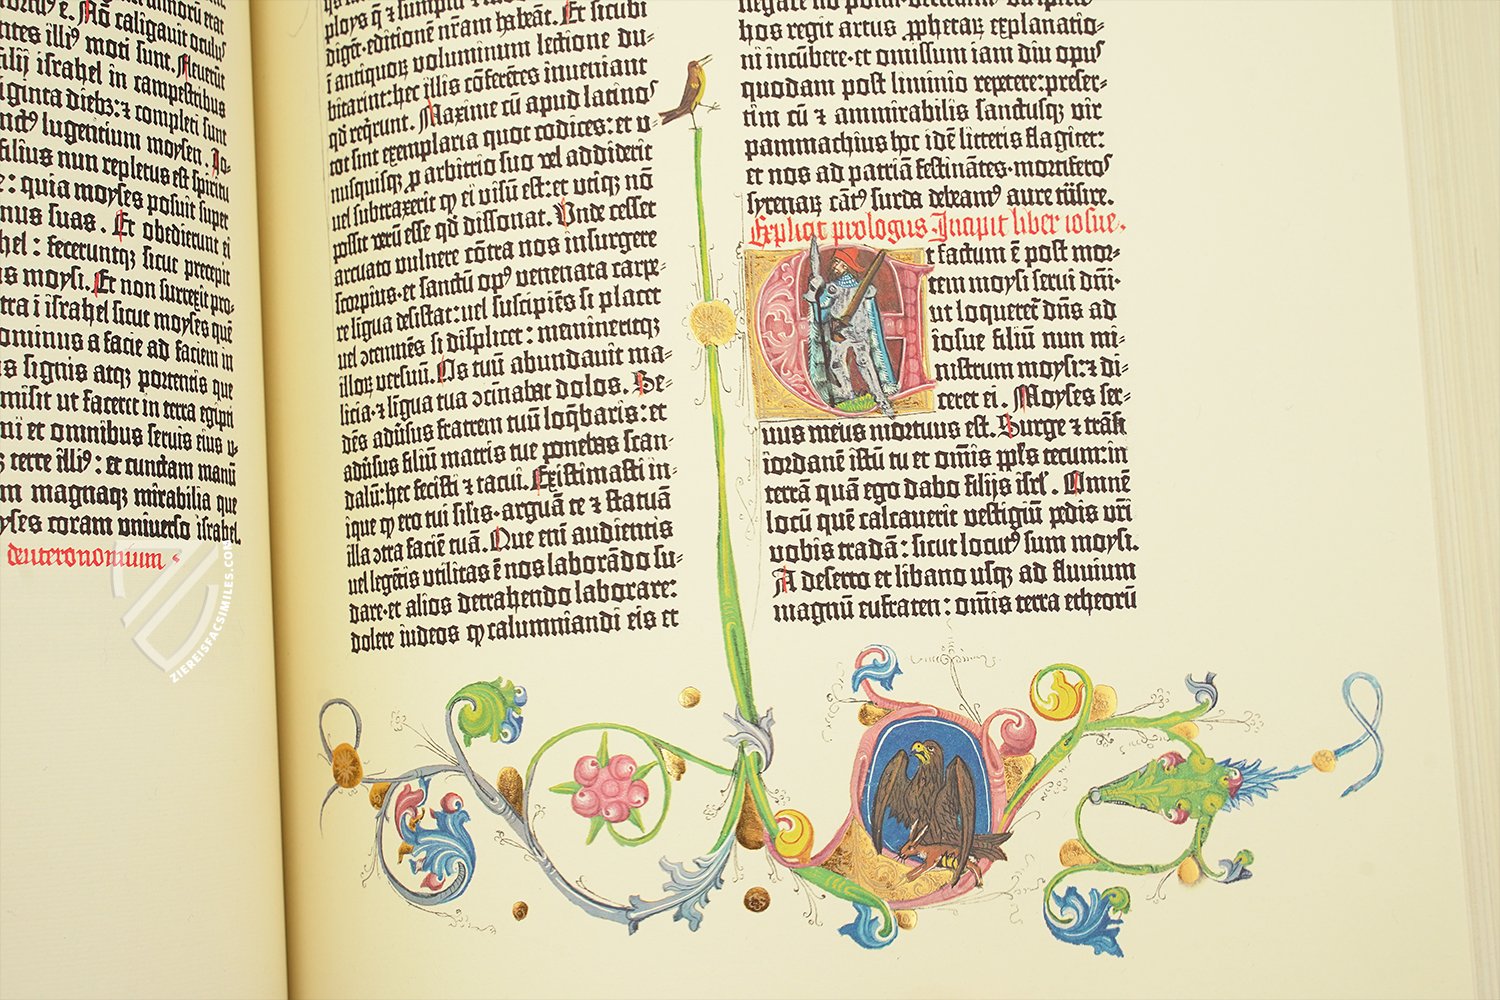 caligauit oculus
illi⁹ moti sunt. Fleuerūt
filij israhel in campestribus
triginta diebꝫ: ⁊ completi sunt
lugentium moysen. Io-
filius nun repletus est spiritu
quia moyses posuit super
manus suas. Et obedierunt ei
feceruntqꝫ sicut precepit
moysi. Et non surrexit pro-
ī israhel sicut moyses quē
dominus a facie ad faciem in
signis atqꝫ portentis que
misit ut faceret in terra egipti
et omnibus seruis eius u-
terre illi⁹: et cunctam manū
magnaqꝫ mirabilia que
moyses coram uniuerso israhel.
deuteronomium
editionē nr̄am habeāt. Et sicubi
ī antiquoꝝ voluminum lectione du-
bitarint: hec illis cōferētes inueniant
qd̄ reqrunt. Maxime cū apud latinos
tot sint exemplaria quot codices: et u-
nusquisqꝫ ꝓ arbitrio suo vel addiderit
uel subtraxerit qꝫ ei visū est: et utiqꝫ nō
possit verū esse qd̄ dissonat. Unde cesset
arcuato vulnere cōtra nos insurgere
scorpius· et sanctū op⁹ venenata carpe-
re līgua desistat: uel suscipiēs si placet
uel ꝯtemnēs si displicet: memineritqꝫ
illoꝝ versuū. Os tuū abundauit ma-
licia· ⁊ līgua tua ꝯcīnabat dolos. Se-
dēs aduſus fratrem tuū loq̄baris: et
aduſus filiū matris tue ponebas scan-
dalū: hec fecisti ⁊ tacui. Existimasti in-
ique qꝫ ero tui silis· arguā te ⁊ statuā
illa ꝯtra faciē tuā. Que eni audientis
uel legētis utilitas ē nos laborādo su-
dare· et alios detrahendo laborare:
dolere iudeos qꝫ calumniandi eis et
hos regit artus prophetaꝝ explanatio-
ni incūbere· et omissum iam diu opus
quodam post liminio repetere: preser-
tim cū ⁊ ammirabilis sanctusqꝫ vir
pammachius hoc idē litteris flagitet:
et nos ad patriā festinātes· mortiferos
syrenaꝝ cāt⁹ surda debeam⁹ aure trāsire.
Explicit prologus Incipit liber iosue.
Et factum ē post mor-
tem moysi serui dn̄i·
ut loqueretʳ dn̄s ad
iosue filiū nun mi-
nistrum moysi: ⁊ di-
ceret ei. Moyses ser-
uus meus mortuus est. Surge ⁊ trāsi
iordanē istū tu et om̄is ppl̄s tecum: in
terrā quā ego dabo filijs isrl̄. Omnē
locū quē calcauerit vestigiū pedis vr̄i
vobis tradā: sicut locut⁹ sum moysi.
A deserto et libano usqꝫ ad fluuium
magnū eufraten: om̄is terra etheorū
ZIEREISFACSIMILES.COM